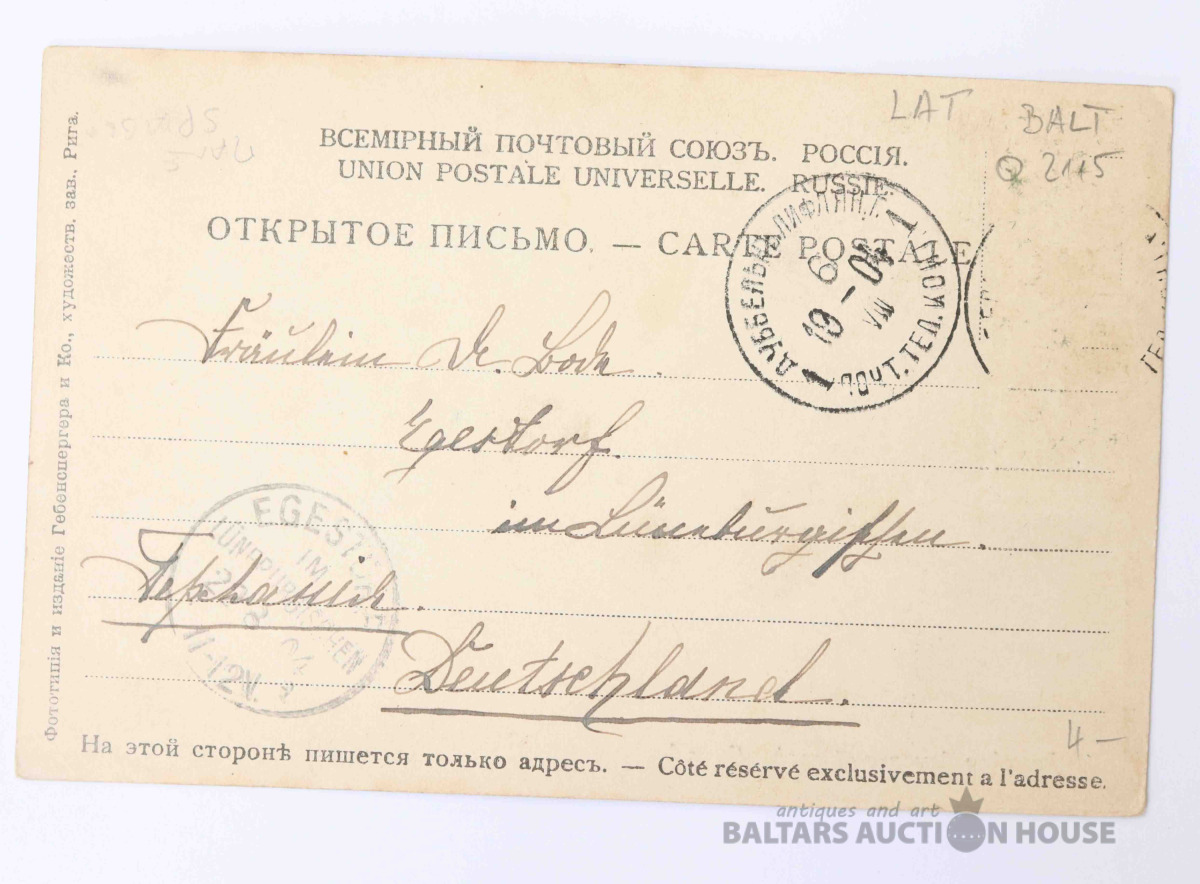 LAT BALT
Q 2115
ВСЕМІРНЫЙ ПОЧТОВЫЙ СОЮЗЪ. РОССІЯ.
UNION POSTALE UNIVERSELLE. RUSSIE.
ОТКРЫТОЕ ПИСЬМО. — CARTE POSTALE
ДУББЕЛЬНЪ ЛИФЛЯН. Г. 1
19 - 6 04
VIII
1 ПОЧТ. ТЕЛ. КОН.
Фототипія и изданіе Гебенспергера и Ко., художеств. зав., Рига.
Fräulein De Bode.
Egestorf.
im Lüneburgischen.
Deutschland.
EGESTORF
IM
LÜNEBURGISCHEN
11-12V.
4 —
На этой сторонѣ пишется только адресъ. — Côté résérvé exclusivement a l'adresse.
antiques and art
BALTARS AUCTION HOUSE